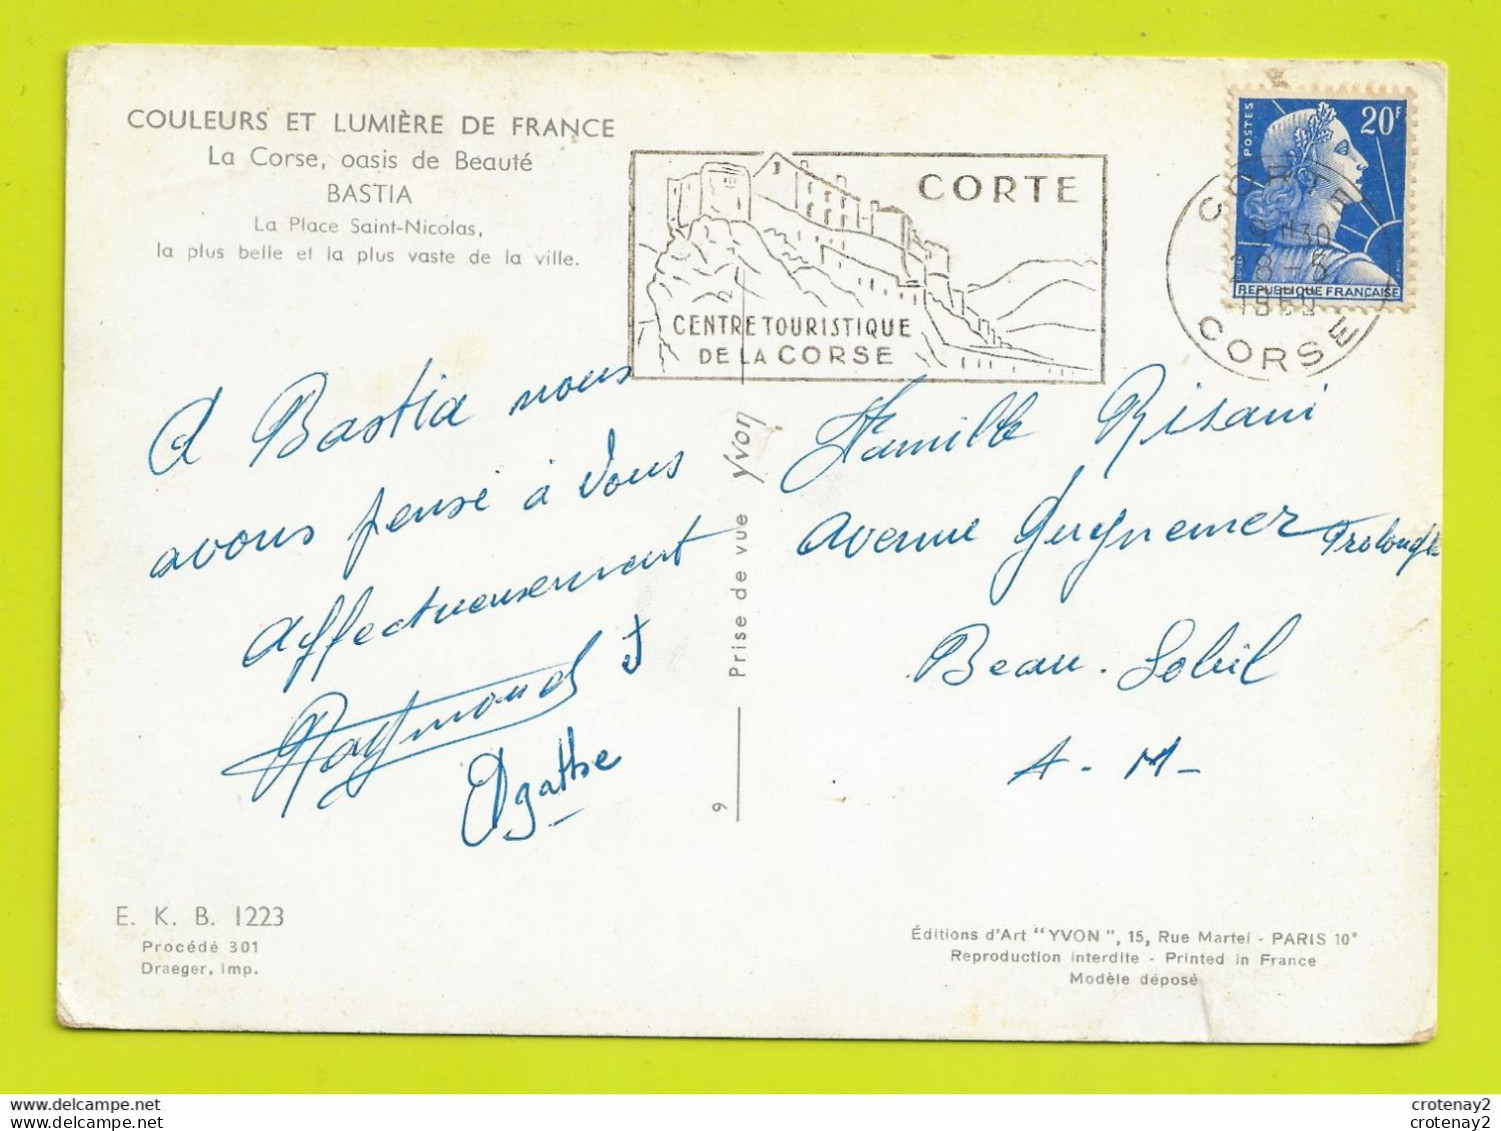 COULEURS ET LUMIÈRE DE FRANCE
La Corse, oasis de Beauté
BASTIA
La Place Saint-Nicolas,
la plus belle et la plus vaste de la ville.
CORTE
CENTRE TOURISTIQUE
DE LA CORSE
POSTES
20F
REPUBLIQUE FRANÇAISE
CORTE
18-5
CORSE
A Bastia nous
avons pensé à vous
affectueusement
Raymond et
Agathe
Prise de vue Yvon
9
Famille Risani
Avenue Guynemer Prolongé
Beau-Soleil
A-M-
E. K. B. 1223
Procédé 301
Draeger, Imp.
Éditions d'Art "YVON", 15, Rue Martel - PARIS 10e
Reproduction interdite - Printed in France
Modèle déposé
crotenay2
crotenay2